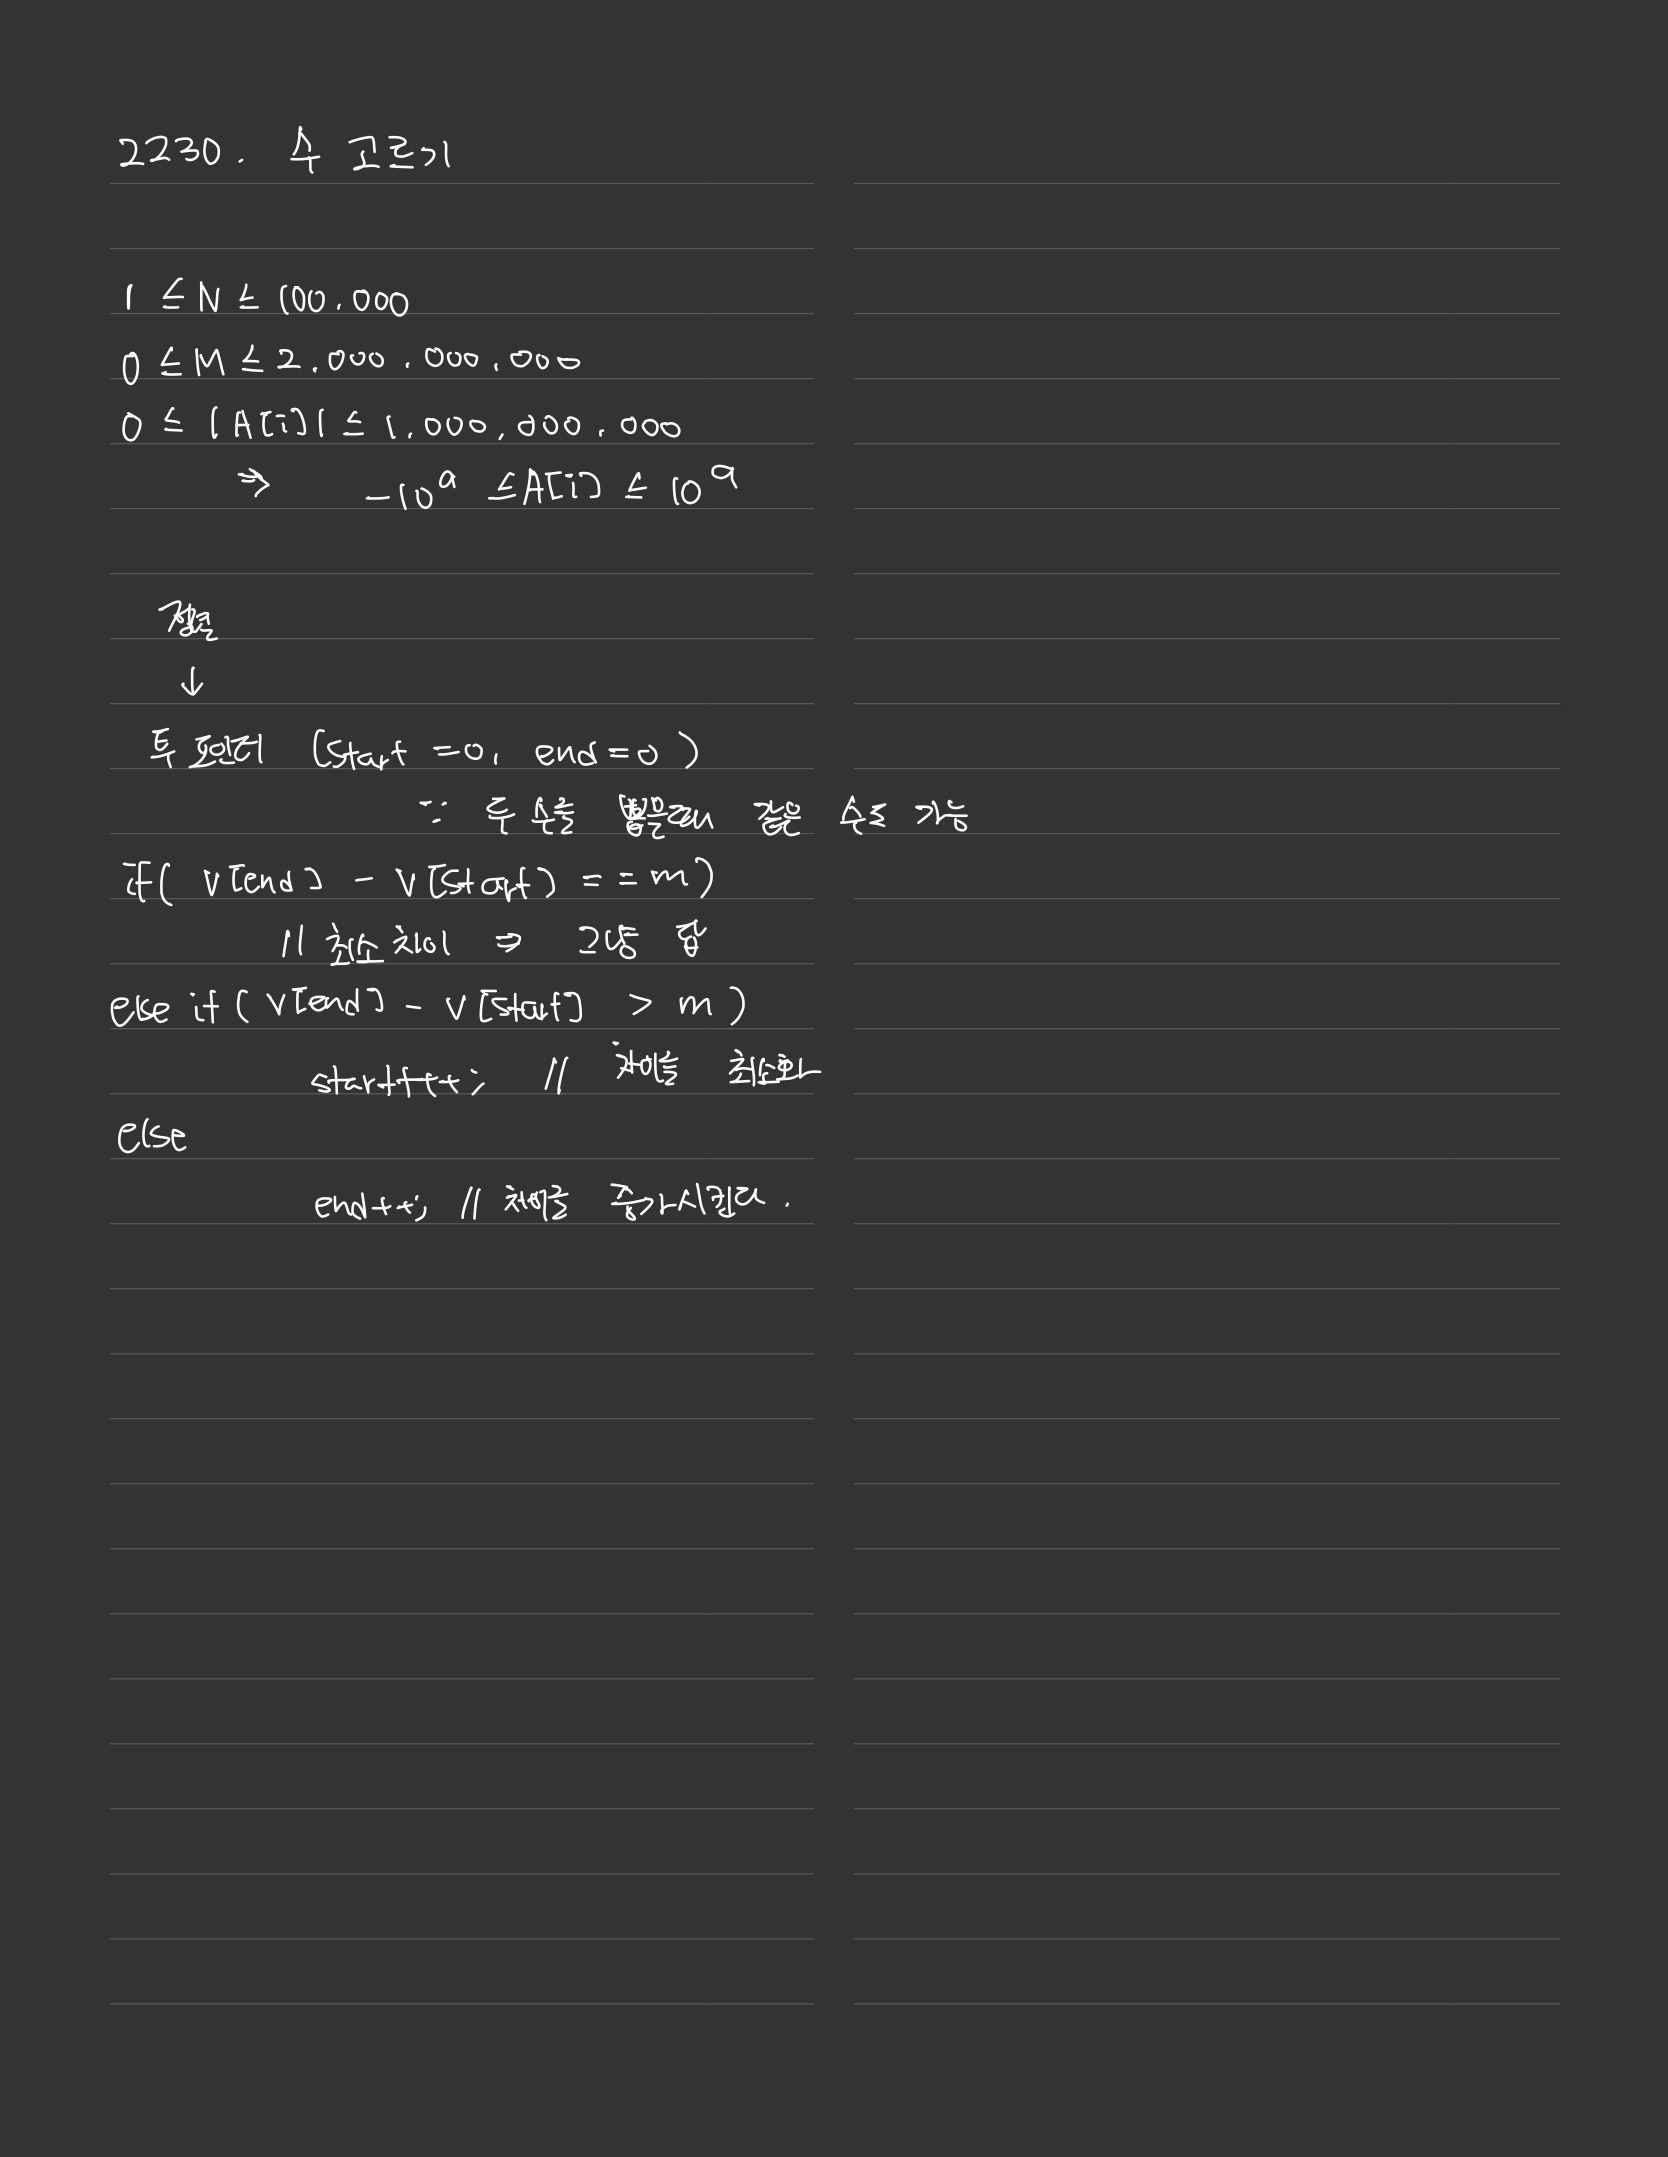 2230. 수 고르기
1 ≤ N ≤ 100.000
0 ≤ M ≤ 2.000.000.000
0 ≤ |A[i]| ≤ 1.000,000.000
⇒ -10⁹ ≤ A[i] ≤ 10⁹
정렬
↓
투 포인터 (start =0, end=0)
∵ 두 수를 뽑을때 같은 수도 가능
if( v[end] - v[start] == m)
// 최소 차이 ⇒ 그냥 답
else if( v[end] - v[start] > m)
start++; // 차이를 최소화
else
end++; // 차이를 증가시킨다.